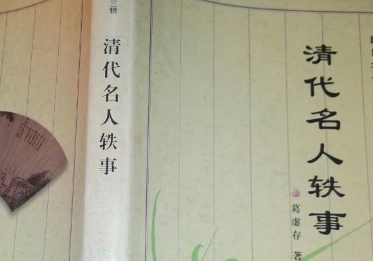 三册
清代名人轶事
清代名人轶事
葛虚存 著